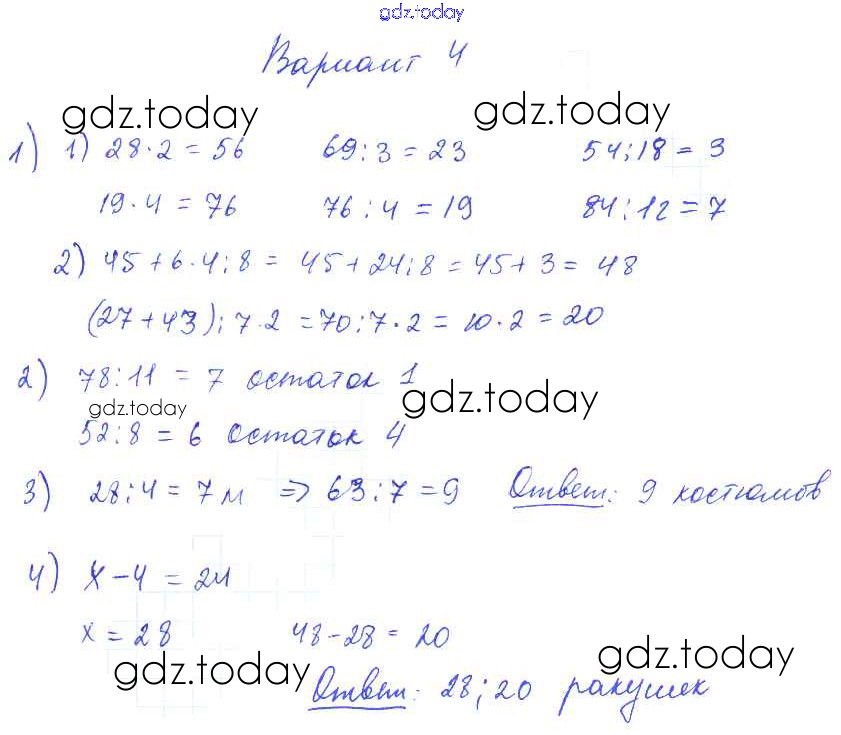 gdz.today
Вариант 4
gdz.today gdz.today
1) 1) 28·2 = 56 69:3 = 23 54:18 = 3
19·4 = 76 76:4 = 19 84:12 = 7
2) 45+6·4:8 = 45+24:8 = 45+3 = 48
(27+43):7·2 = 70:7·2 = 10·2 = 20
2) 78:11 = 7 остаток 1
gdz.today gdz.today
52:8 = 6 остаток 4
3) 28:4 = 7 м => 63:7 = 9 Ответ: 9 костюмов
4) x-4 = 24
x = 28 48-28 = 20
gdz.today gdz.today
Ответ: 28; 20 ракушек